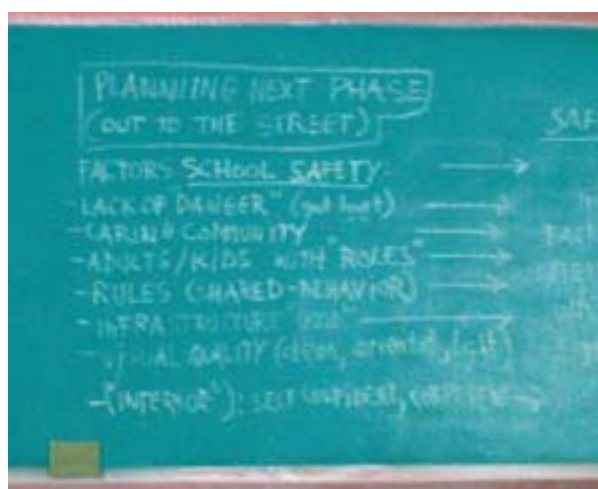 PLANNING NEXT PHASE
(OUT TO THE STREET)
SAF
FACTORS SCHOOL SAFETY:
LACK OF DANGER" (get hurt)
- CARING COMMUNITY
FACT
- ADULTS/KIDS WITH "ROLES"
- RULES (SHARED-BEHAVIOR)
- INFRASTRUCTURE
- VISUAL QUALITY (clean, oriented,
- ("INTERIOR"): SELF CONFIDENT,